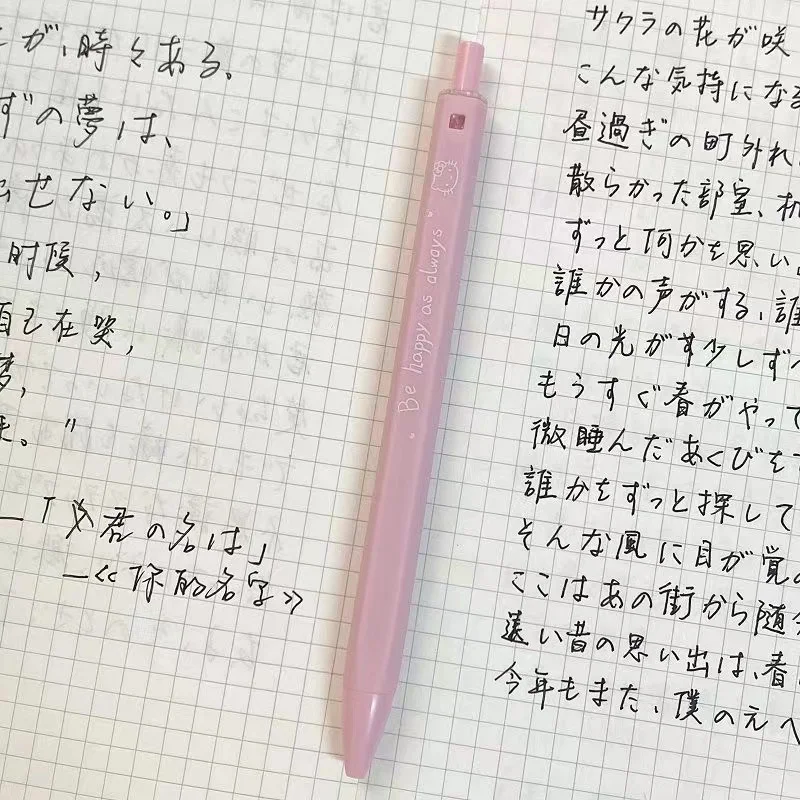 が、時々ある。
ずの夢は、
出せない。」
时候，
自己在哭，
梦，
来。"
—「君の名は」
—《你的名字》
Be happy as always
サクラの花が咲
こんな気持になる
昼過ぎの町外れ
散らかった部室、机
ずっと何かを思い
誰かの声がする、誰
日の光が少しずつ
もうすぐ春がやって
微睡んだあくびをす
誰かをずっと探して
そんな風に目が覚め
ここはあの街から随分
遠い昔の思い出は、春
今年もまた、僕のえへ